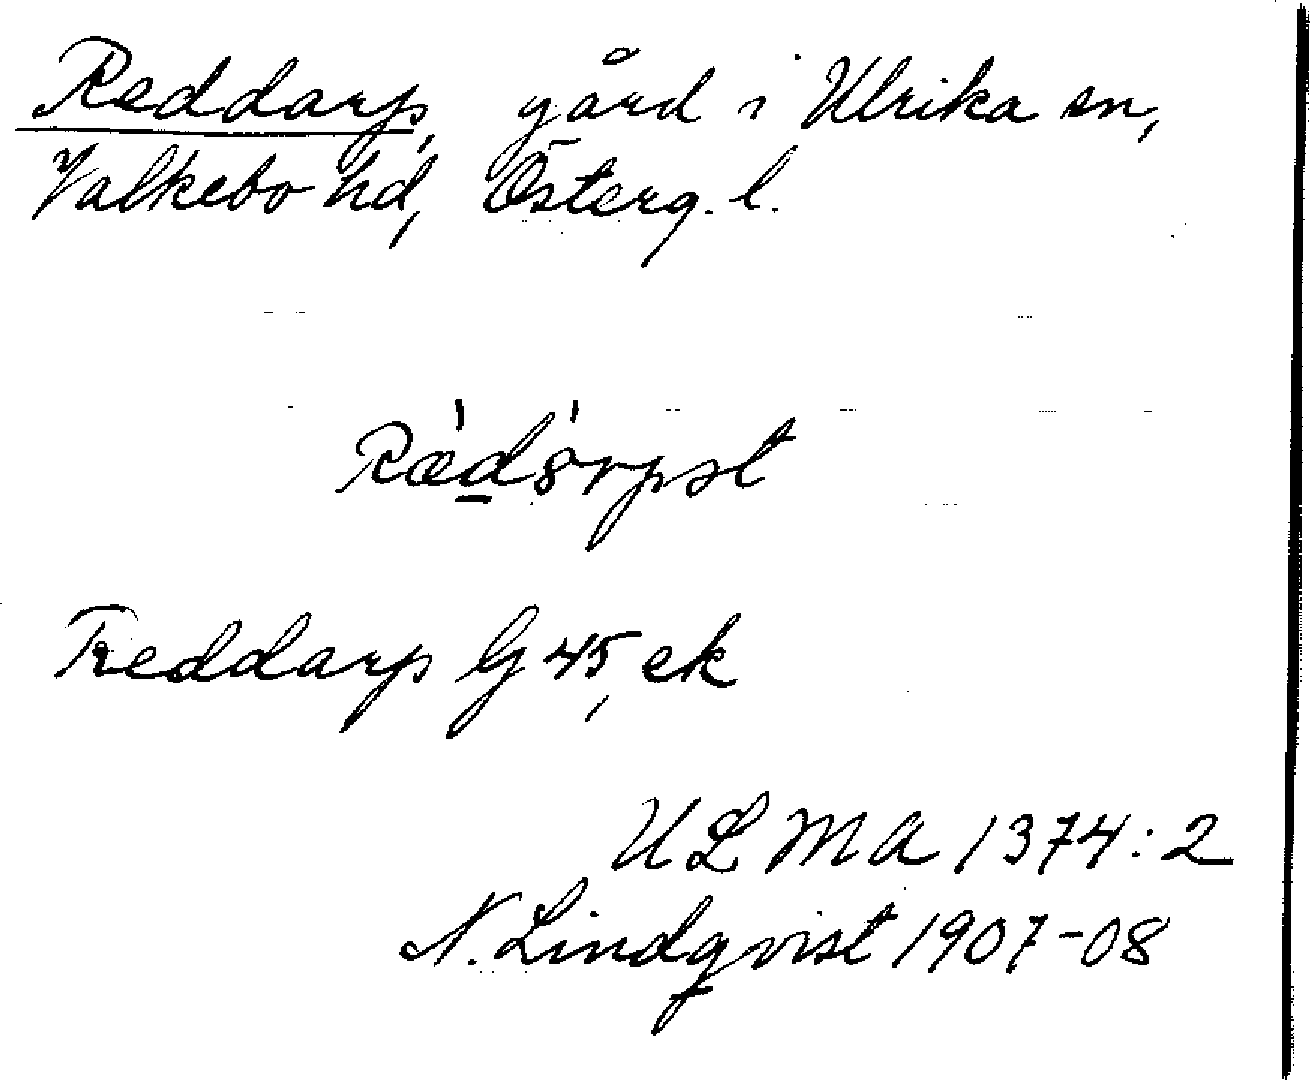 Reddarp, gård i Ulrika sn,
Valkebo hd, Österg. l.
Ræ̀d8̀rpst
Reddarp G 45, ek
ULMA 1374:2
N. Lindqvist 1907-08